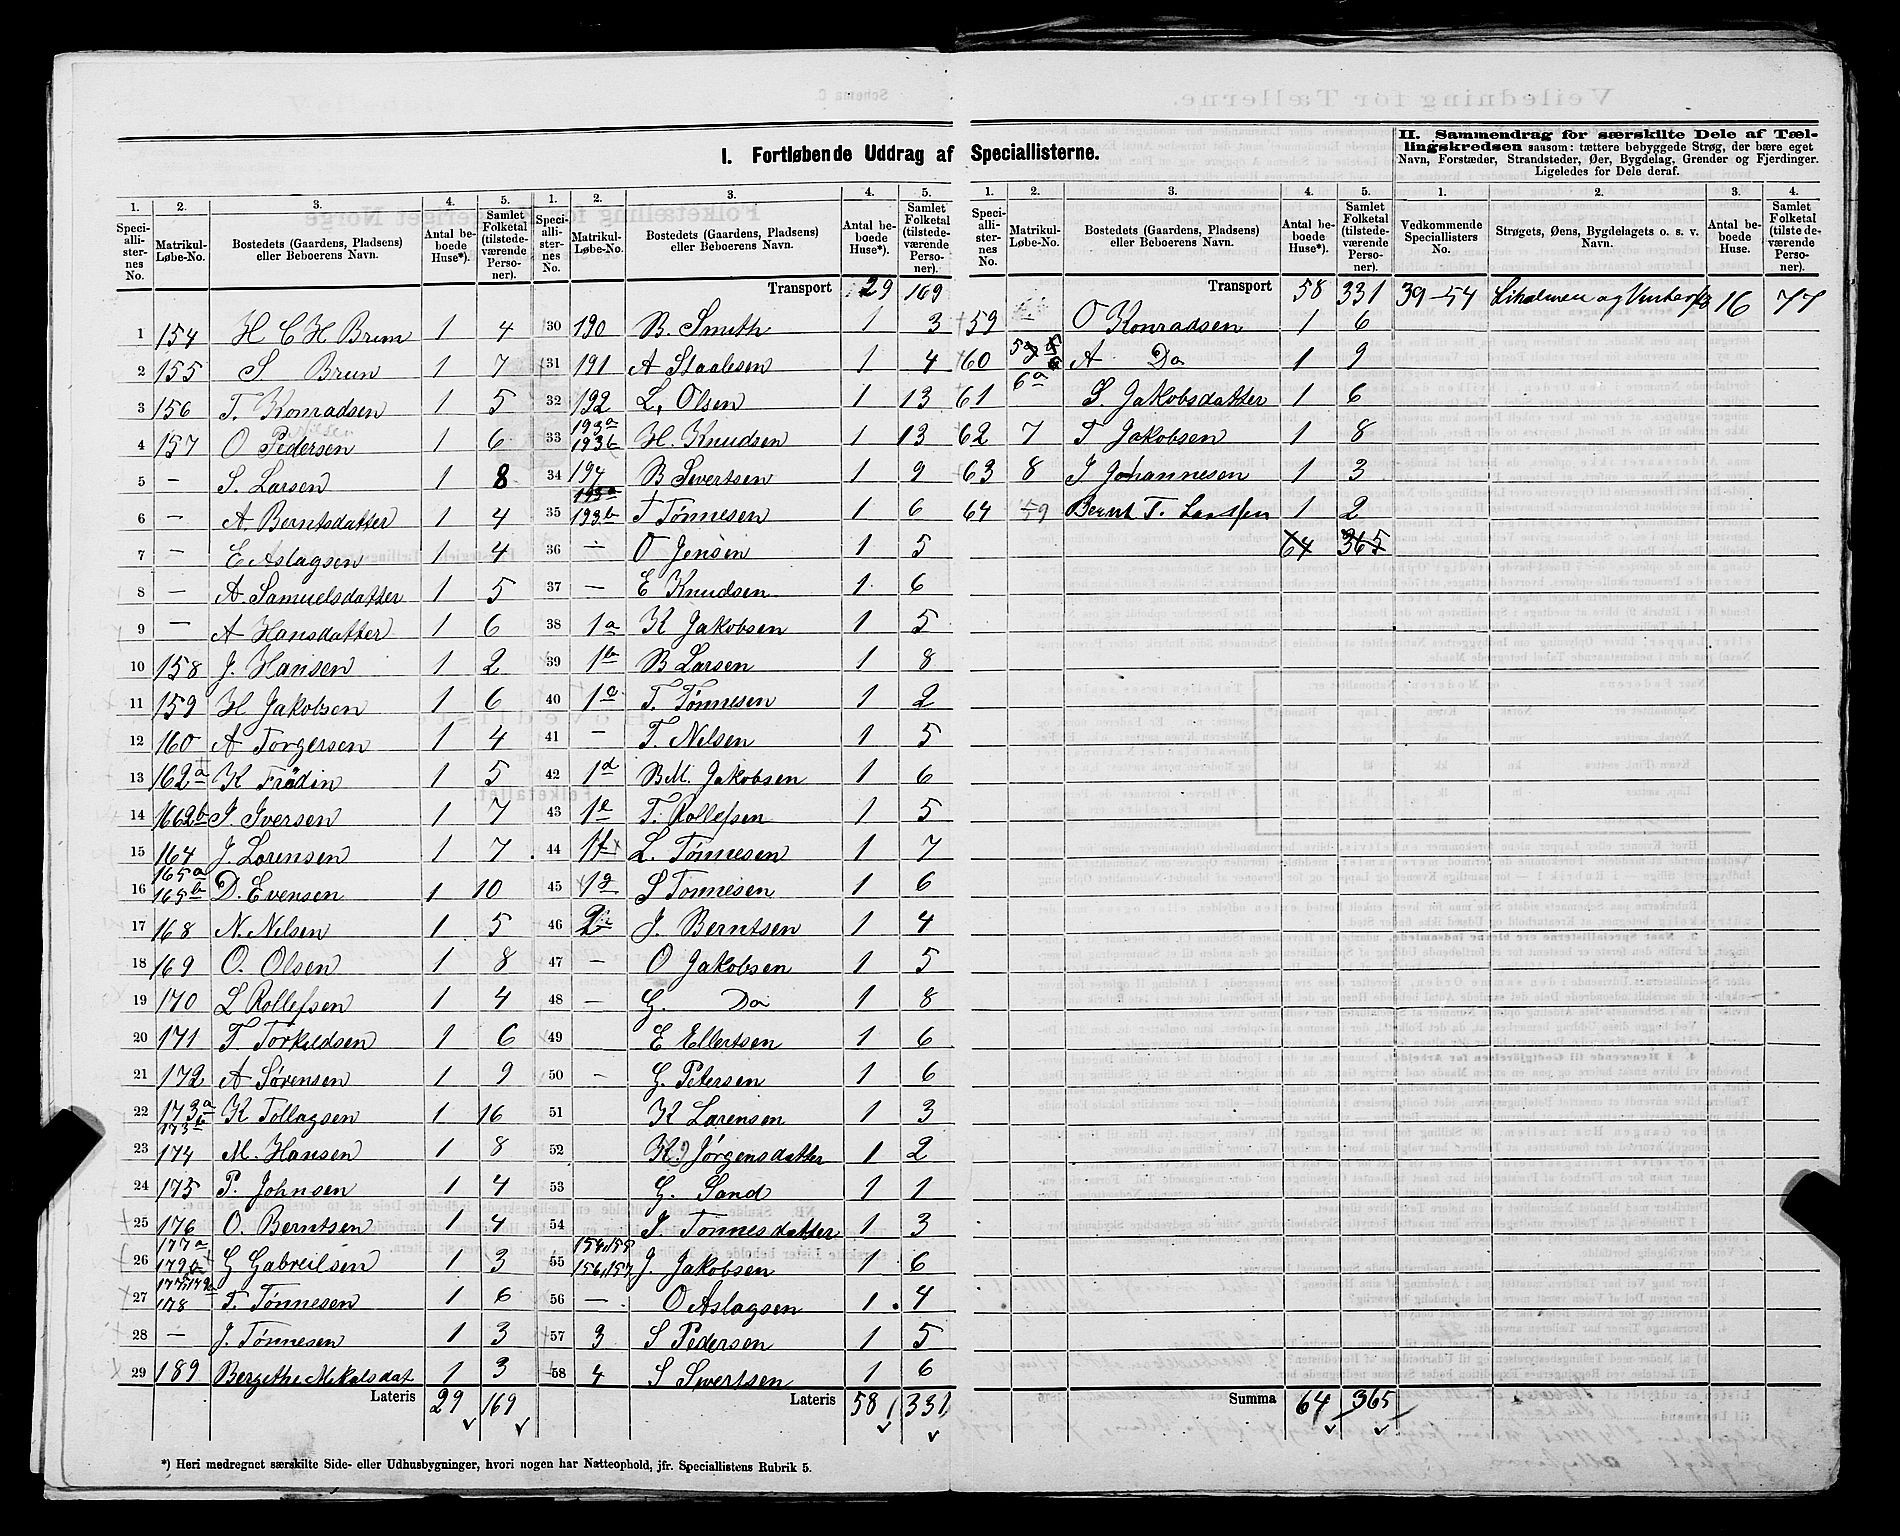 I. Fortløbende Uddrag af Speciallisterne.
1. Speciallisternes No. 2. Matrikul-Løbe-No. 3. Bostedets (Gaardens, Pladsens) eller Beboerens Navn. 4. Antal beboede Huse*). 5. Samlet Folketal (tilstedeværende Personer).
1 154 H C H Brun 1 4
2 155 S Brun 1 7
3 156 T. Konradsen 1 5
4 157 O Pedersen 1 6
5 - S. Larsen 1 8
6 - A. Berntsdatter 1 4
7 - E Aslagsen 1 4
8 - A. Samuelsdatter 1 5
9 - A Hansdatter 1 6
10 158 J. Hansen 1 2
11 159 H Jakobsen 1 6
12 160 A Torgersen 1 4
13 162a K Frødin 1 5
14 1662b J Iversen 1 7
15 164 J. Lorensen 1 7
16 165a 165b D. Evensen 1 10
17 168 N. Nilsen 1 5
18 169 O. Olsen 1 8
19 170 L Rollefsen 1 4
20 171 T Torkildsen 1 6
21 172 A Sørensen 1 9
22 173a 173b K Tollagsen 1 16
23 174 M. Hansen 1 8
24 175 P. Johnsen 1 4
25 176 O. Berntsen 1 4
26 177a 179a G Gabreilsen 1 3
27 178 T. Tønnesen 1 6
28 - J. Tønnesen 1 3
29 189 Bergethe Mikalsdat 1 3
Lateris 29 169
1. Speciallisternes No. 2. Matrikul-Løbe-No. 3. Bostedets (Gaardens, Pladsens) eller Beboerens Navn. 4. Antal beboede Huse*). 5. Samlet Folketal (tilstedeværende Personer).
Transport 29 169
30 190 B. Smith 1 3
31 191 A Staalesen 1 4
32 192 L. Olsen 1 13
33 193a 193b H. Knudsen 1 13
34 194 B Sivertsen 1 9
35 193a 193b T Tønnesen 1 6
36 - O Jensen 1 5
37 - E Knudsen 1 6
38 1a K Jakobsen 1 5
39 1b B Larsen 1 8
40 1c T. Tønnesen 1 2
41 - T. Nilsen 1 5
42 1d BM. Jakobsen 1 6
43 1e T. Rollefsen 1 5
44 1f L. Tønnesen 1 7
45 1g S Tønnesen 1 6
46 2 J. Berntsen 1 4
47 - O Jakobsen 1 5
48 - G. Do 1 8
49 E Ellertsen 1 6
50 - G. Petersen 1 6
51 K Lorensen 1 3
52 K. Jørgensdatter 1 2
53 G. Sand 1 1
54 J. Tønnesdatter 1 3
55 154,155 156,157 J. Jakobsen 1 6
56 - O Aslagsen 1 4
57 3 S Pedersen 1 5
58 4 S Sivertsen 1 6
Lateris 58 331
*) Heri medregnet særskilte Side- eller Udhusbygninger, hvori nogen har Natteophold, jfr. Speciallistens Rubrik 5.
1. Speciallisternes No. 2. Matrikul-Løbe-No. 3. Bostedets (Gaardens, Pladsens) eller Beboerens Navn. 4. Antal beboede Huse*). 5. Samlet Folketal (tilstedeværende Personer).
Transport 58 331
59 O Konradsen 1 6
60 A Do 1 9
61 6a S. Jakobsdatter 1 6
62 7 T Jakobsen 1 8
63 8 J Johannesen 1 3
64 59 Bernt T. Larssen 1 2
64 365
Summa 64 365
II. Sammendrag for særskilte Dele af Tællingskredsen saasom: tættere bebyggede Strøg, der bære eget Navn, Forstæder, Strandsteder, Øer, Bygdelag, Grender og Fjerdinger. Ligeledes for Dele deraf.
1. Vedkommende Speciallisters No. 2. Strøgets, Øens, Bygdelagets o. s. v. Navn. 3. Antal beboede Huse. 4. Samlet Folketal (tilstedeværende Personer).
39-54 og 16 77